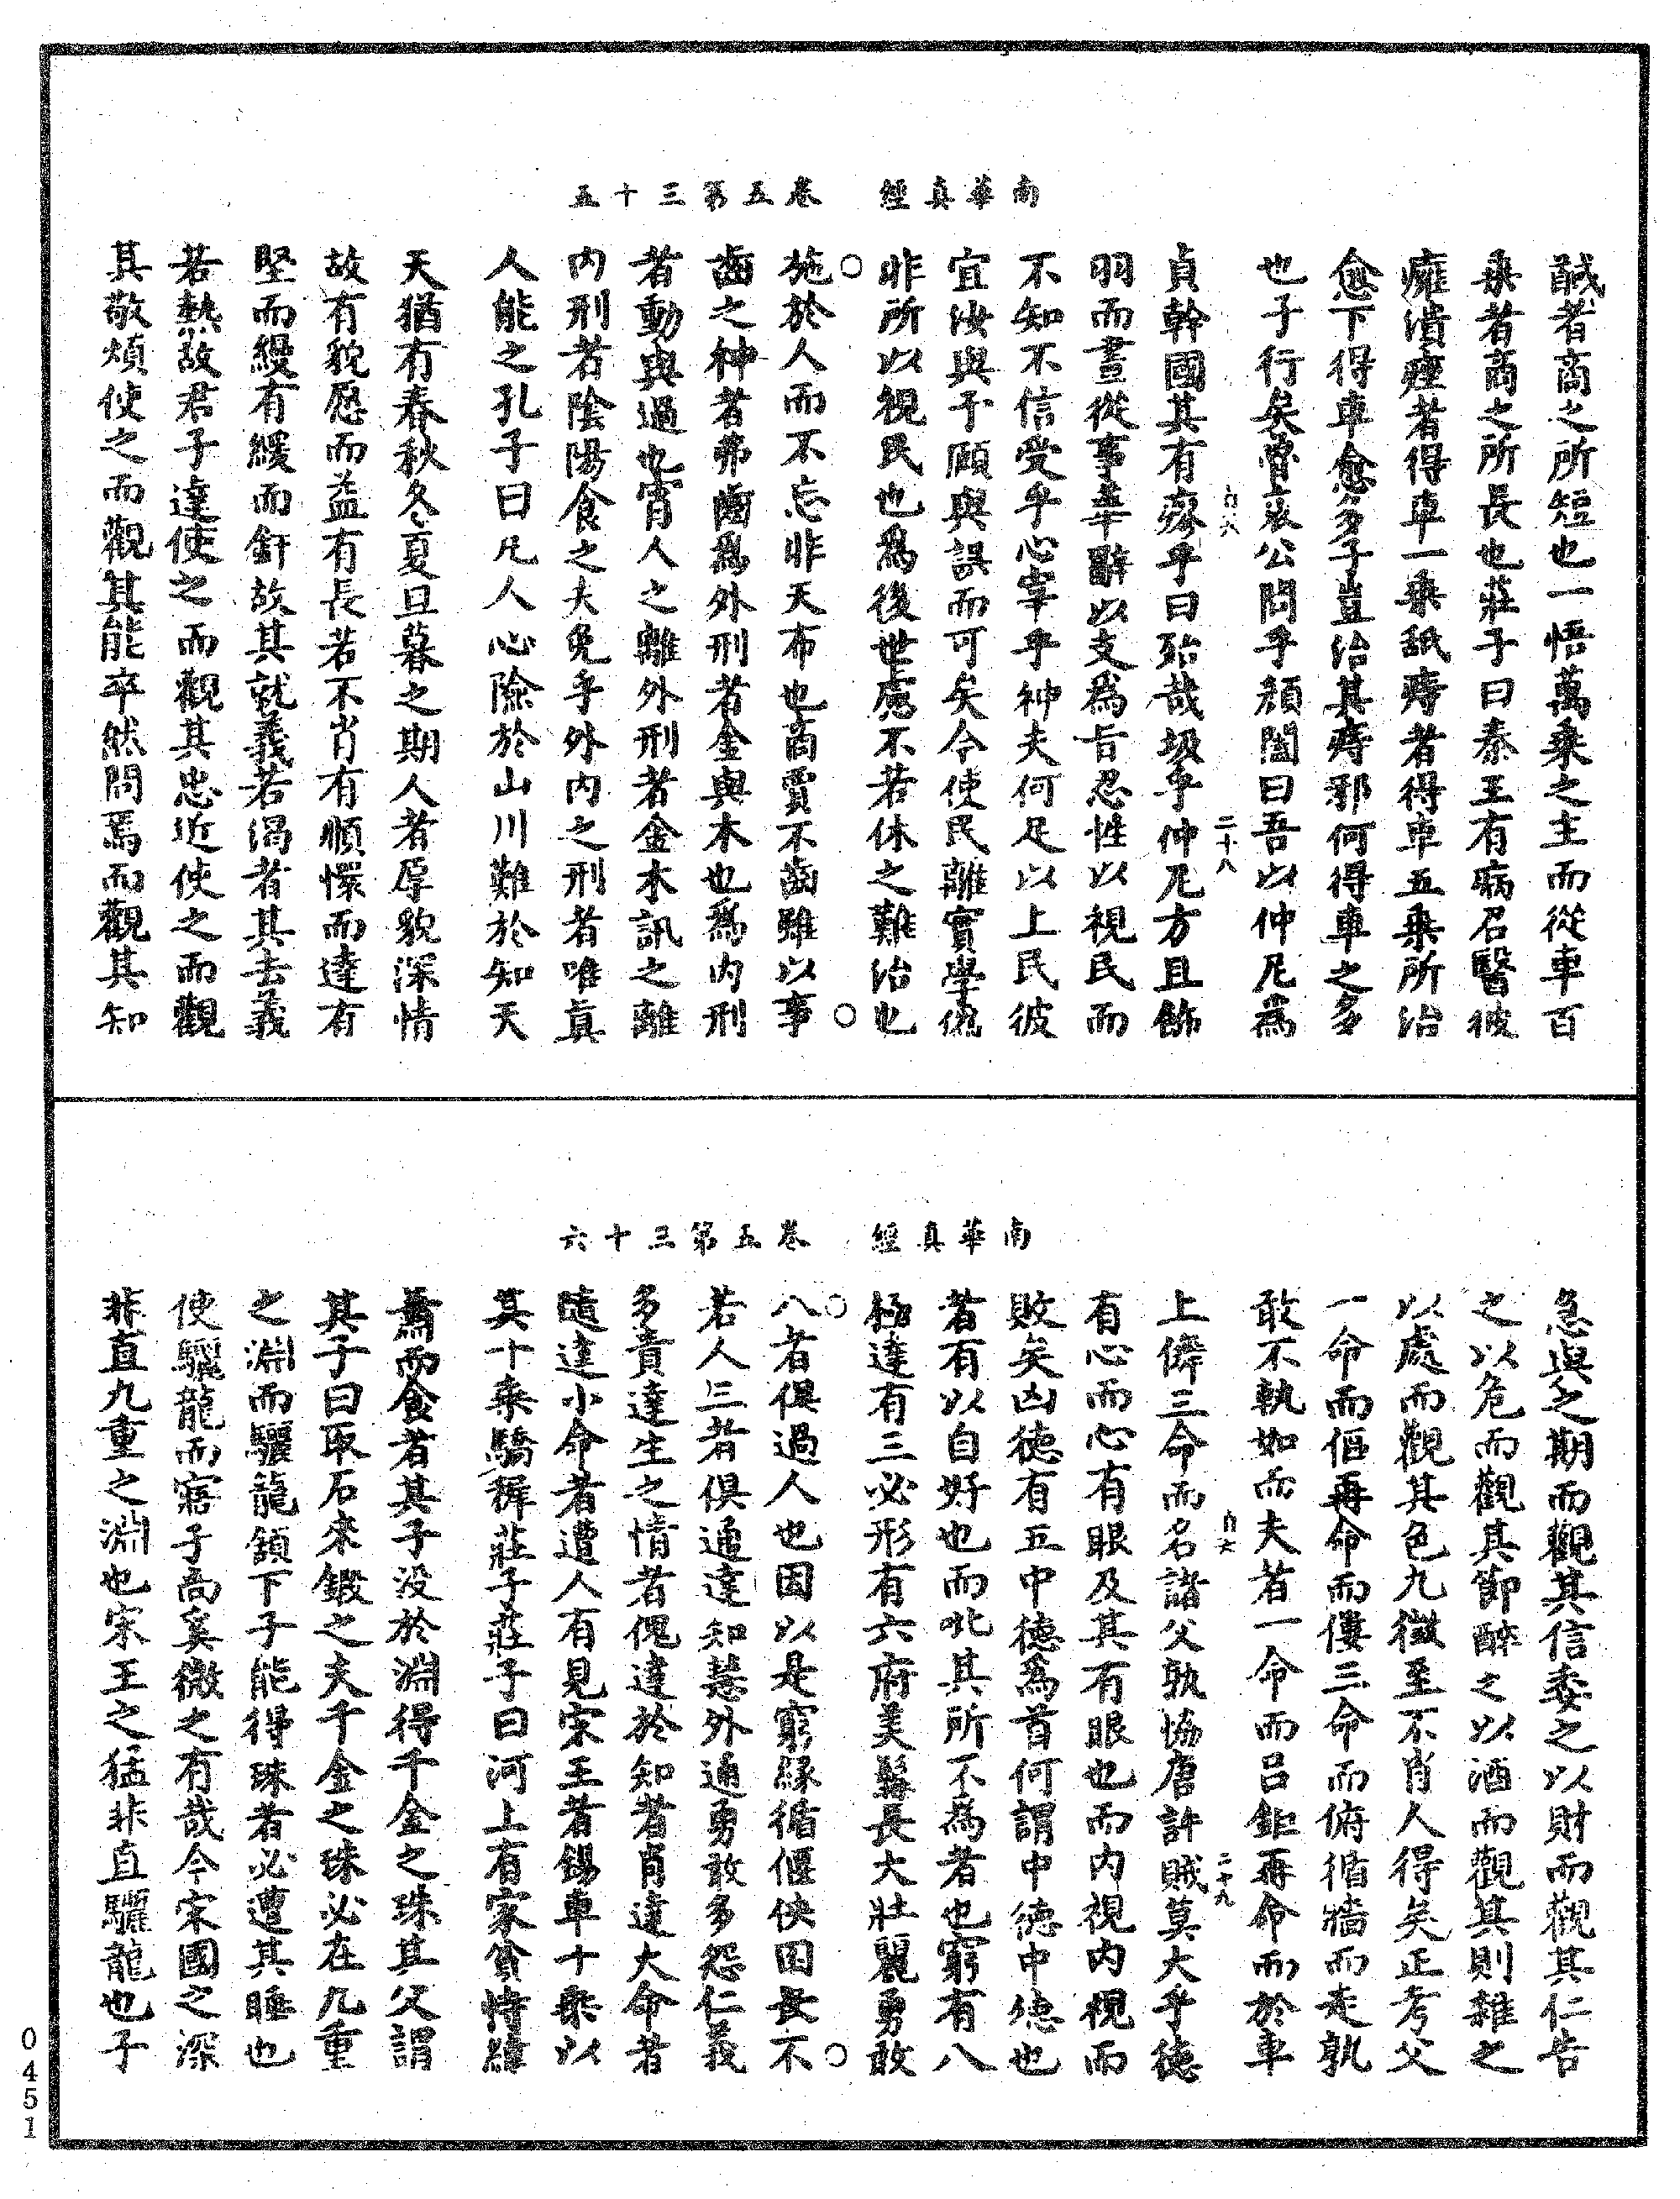 南華真經　卷五第三十五
馘者商之所短也一悟萬乘之主而從車百
乘者商之所長也莊子曰秦王有病召醫破
癰潰痤者得車一乘舐痔者得車五乘所治
愈下得車愈多子豈治其痔邪何得車之多
也子行矣魯哀公問乎顏闔曰吾以仲尼為
貞幹國其有瘳乎曰殆哉圾乎仲尼方且飾
貞六
二十八
羽而畫從事華辭以支為旨忍性以視民而
不知不信受乎心宰乎神夫何足以上民彼
宜汝與予頤與誤而可矣今使民離實學偽
非所以視民也為後世慮不若休之難治也
○施於人而不忘非天布也商賈不齒雖以事○
齒之神者弗齒為外刑者金與木也為內刑
者動與過也宵人之離外刑者金木訊之離
內刑者陰陽食之夫免乎外內之刑者唯真
人能之孔子曰凡人心險於山川難於知天
天猶有春秋冬夏旦暮之期人者厚貌深情
故有貌愿而益有長若不肖有順懁而達有
堅而縵有緩而釬故其就義若渴者其去義
若熱故君子遠使之而觀其忠近使之而觀
其敬煩使之而觀其能卒然問焉而觀其知
南華真經　卷五第三十六
急與之期而觀其信委之以財而觀其仁告
之以危而觀其節醉之以酒而觀其則雜之
以處而觀其色九徵至不肖人得矣正考父
一命而傴再命而僂三命而俯循牆而走孰
敢不執如而夫者一命而呂鉅再命而於車
上儛三命而名諸父孰協唐許賊莫大乎德
貞六
二十九
有心而心有眼及其有眼也而內視內視而
敗矣凶德有五中德為首何謂中德中德也
者有以自好也而吡其所不為者也窮有八
極達有三必形有六府美髯長大壯麗勇敢
○八者俱過人也因以是窮緣循偃佒困畏不○
若人三者俱通達知慧外通勇敢多怨仁義
多責達生之情者傀達於知者肖達大命者
隨達小命者遭人有見宋王者錫車十乘以
其十乘驕穉莊子莊子曰河上有家貧恃緯
蕭而食者其子沒於淵得千金之珠其父謂
其子曰取石來鍛之夫千金之珠必在九重
之淵而驪龍頷下子能得珠者必遭其睡也
使驪龍而寤子尚奚微之有哉今宋國之深
非直九重之淵也宋王之猛非直驪龍也子
0451